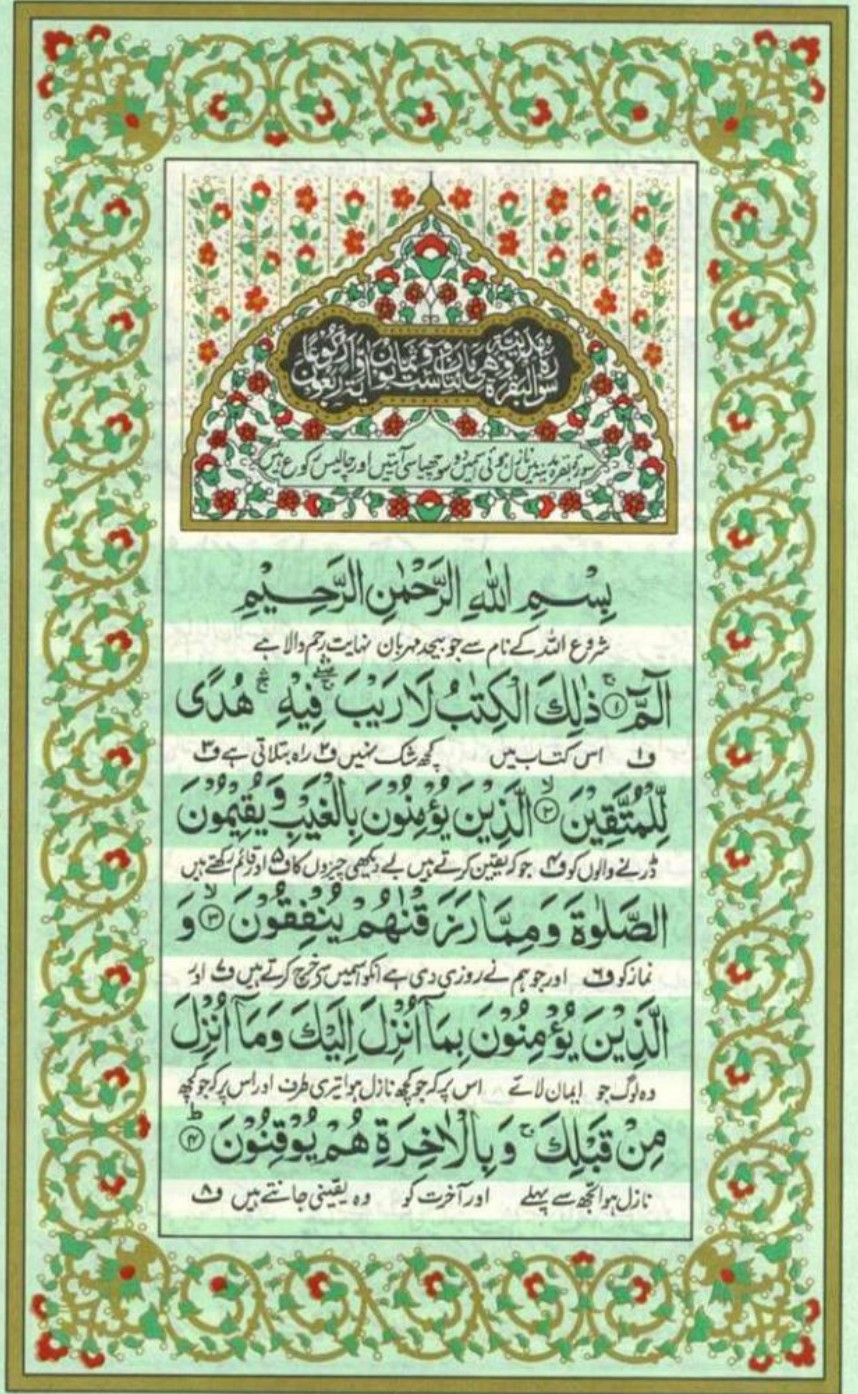 سورة البقرة مدنية وهي مائتان وست وثمانون آية وأربعون ركوعا
سورۂ بقرہ مدینہ میں نازل ہوئی اسمیں دو سو چھیاسی آیتیں اور چالیس رکوع ہیں
بِسْمِ اللّٰهِ الرَّحْمٰنِ الرَّحِيْمِ
شروع اللہ کے نام سے جو بیحد مہربان نہایت رحم والا ہے
الٓمّٓ ۚ﴿۱﴾ ذٰلِكَ الْكِتٰبُ لَا رَيْبَ ۛۖۚ فِيْهِ ۛۚ هُدًى
ف۱ اس کتاب میں کچھ شک نہیں ف۲ راہ بتلاتی ہے ف۳
لِّلْمُتَّقِيْنَ ۙ﴿۲﴾ الَّذِيْنَ يُؤْمِنُوْنَ بِالْغَيْبِ وَيُقِيْمُوْنَ
ڈرنے والوں کو ف۴ جو کہ یقین کرتے ہیں بے دیکھی چیزوں کا ف۵ اور قائم رکھتے ہیں
الصَّلٰوةَ وَمِمَّا رَزَقْنٰهُمْ يُنْفِقُوْنَ ۙ﴿۳﴾ وَ
نماز کو ف۶ اور جو ہم نے روزی دی ہے انکو اسمیں سے خرچ کرتے ہیں ف۷ اور
الَّذِيْنَ يُؤْمِنُوْنَ بِمَآ اُنْزِلَ اِلَيْكَ وَمَآ اُنْزِلَ
وہ لوگ جو ایمان لائے اس پر کہ جو کچھ نازل ہوا تیری طرف اور اس پر کہ جو کچھ
مِنْ قَبْلِكَ ۚ وَبِالْاٰخِرَةِ هُمْ يُوْقِنُوْنَ ؕ﴿۴﴾
نازل ہوا تجھ سے پہلے اور آخرت کو وہ یقینی جانتے ہیں ف۸